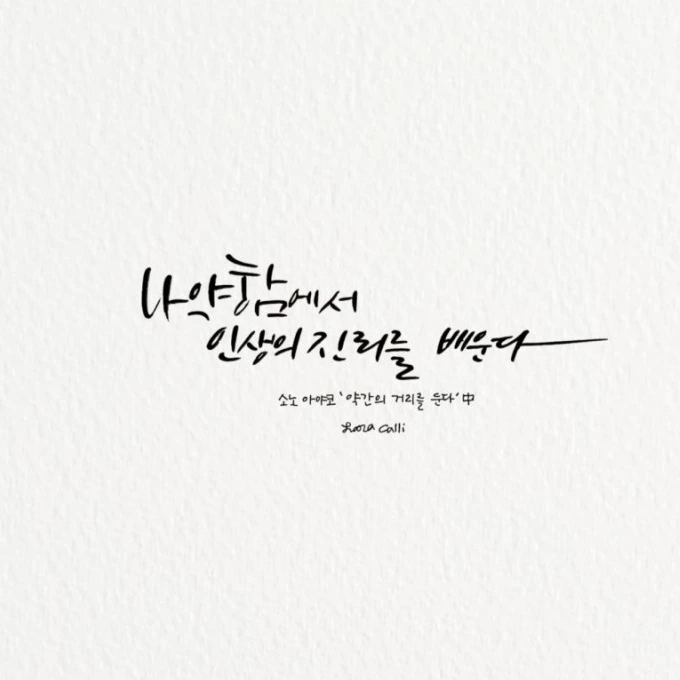 나약함에서
인생의 진리를 배운다
소노 아야코 '약간의 거리를 둔다' 中
Calli